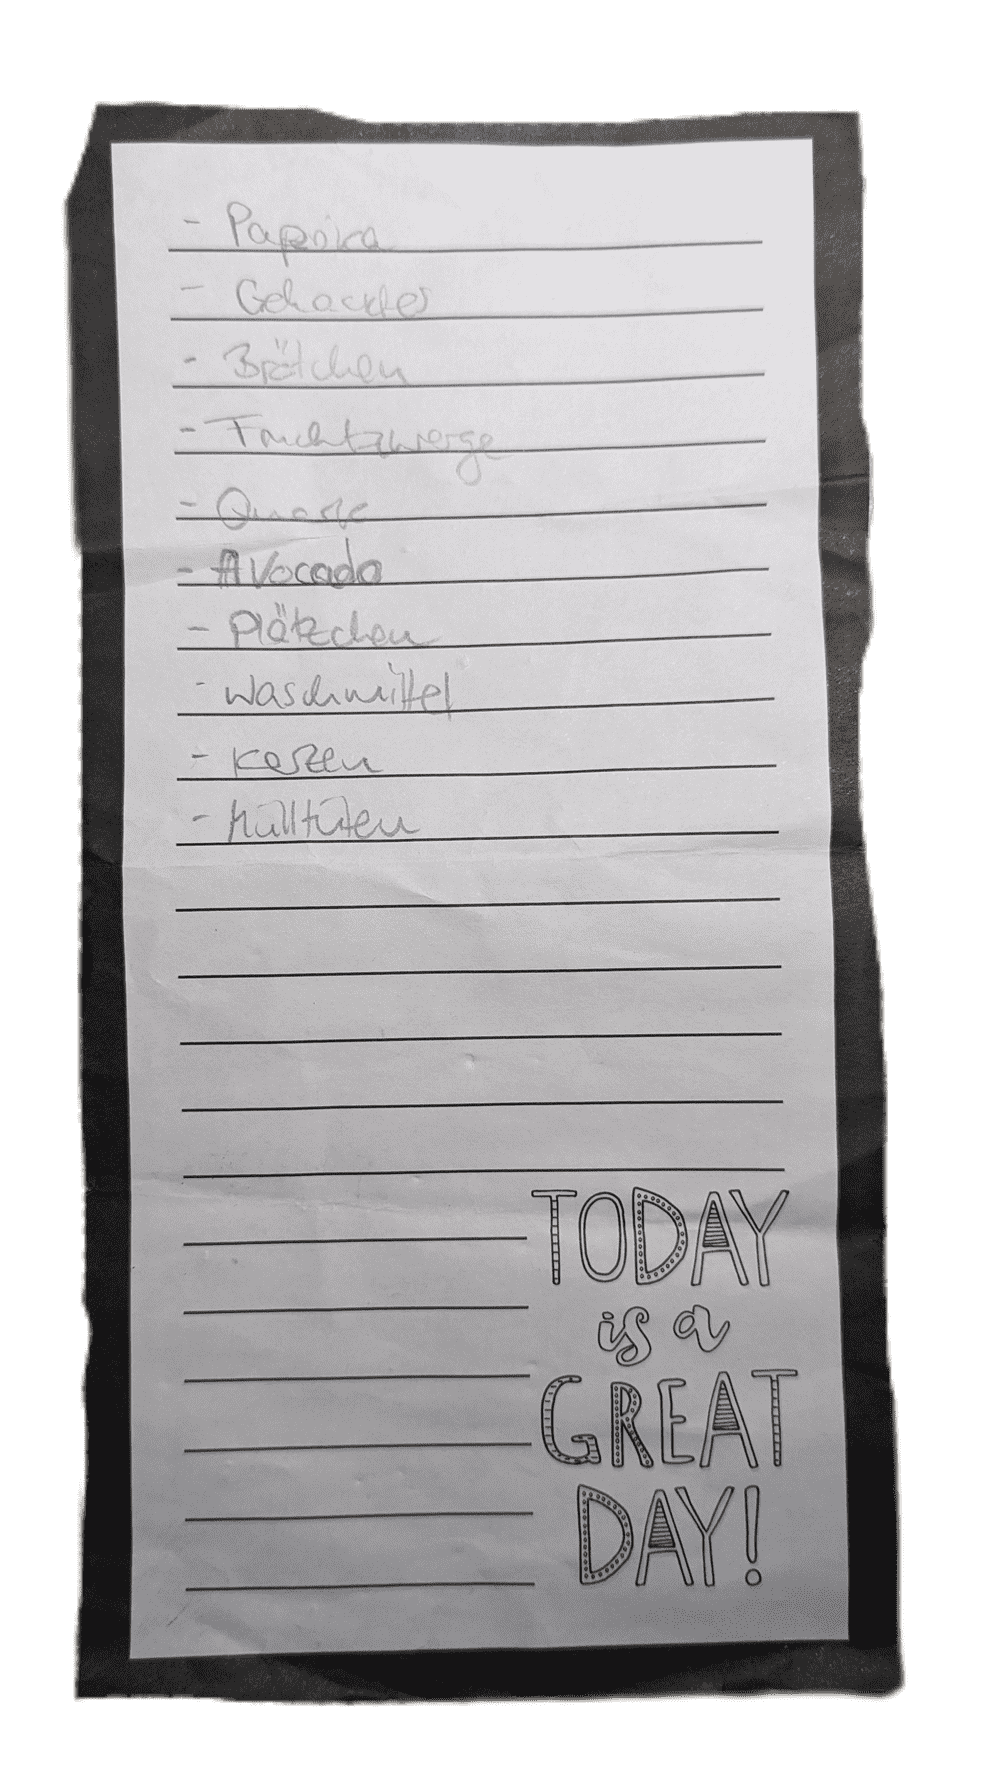 - Paprika
- Gehacktes
- Brötchen
- Fruchtzwerge
- Quark
- Avocado
- Plätzchen
- Waschmittel
- Kerzen
- Mülltüten
TODAY
is a
GREAT
DAY!